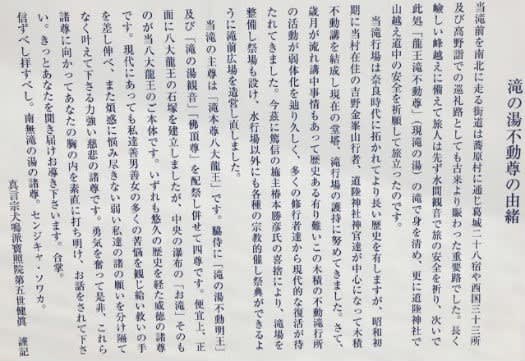 滝の湯不動尊の由緒
当滝前を南北に走る街道は蕎原村に通じ葛城二十八宿や西国三十三所
及び高野詣での巡礼路としても古来より賑わった重要路でした。長く
険しい峰越えに備えて旅人は先ず水間観音で旅の安全を祈り、次いで
此処「龍王滝不動尊」（現滝の湯）の滝で身を清め、更に道陸神社で
山越え道中の安全を祈願して旅立ったのです。
当滝行場は奈良時代に拓かれてより長い歴史を有しますが、昭和初
期に当村在住の吉野金峯山行者、道陸神社神官達が中心になって木積
不動講を結成し現在の堂塔、滝行場の護持に努めてきました。さて、
歳月が流れ講中事情もあって歴史ある有り難いこの木積の不動滝行所
の活動が弱体化を辿り久しく、多くの修行者達から現代的な復活が待
たれてきました。今茲に篤信の施主椿本勝彦氏の喜捨により、滝場を
整備し祭場も設け、水行場以外にも各種の宗教的催し祭典ができるよ
うに滝前広場を造営し直しました。
当滝の主尊は「滝本尊八大龍王」です。脇侍に「滝の湯不動明王」
及び「滝の湯観音」「佛頂尊」を配祭し併せて四尊です。便宜上、正
面に八大龍王の石塚を建立しましたが、中央の瀑布の「お滝」そのも
のが当八大龍王のご本体です。いずれも悠久の歴史を経た威徳の諸尊
です。現代にあっても私達善男善女の多くの苦悩を観じ給い救いの手
を差し伸べ、また煩惑に悩み尽きない弱い私達の諸の願いを分け隔て
なく叶えて下さる力強い慈悲の諸尊です。勇気を奮って是非、これら
諸尊に向かってあなたの胸の内を素直に打ち明け、お話をされて下さ
い。きっとあなたを聞き届けお導き下さいます。合掌。
信ずべし拝すべし。南無滝の湯の諸尊。センジキャ・ソワカ。
真言宗犬鳴派寶照院第五世健眞　謹記